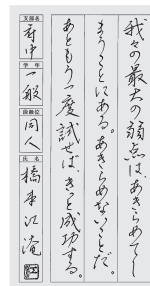 我々の最大の弱点は、あきらめてし
まうことにある。あきらめないことだ。
あともう一度試せば、きっと成功する。
支部名
府中
学年
一般
段級位
同人
氏名
橋本江滝